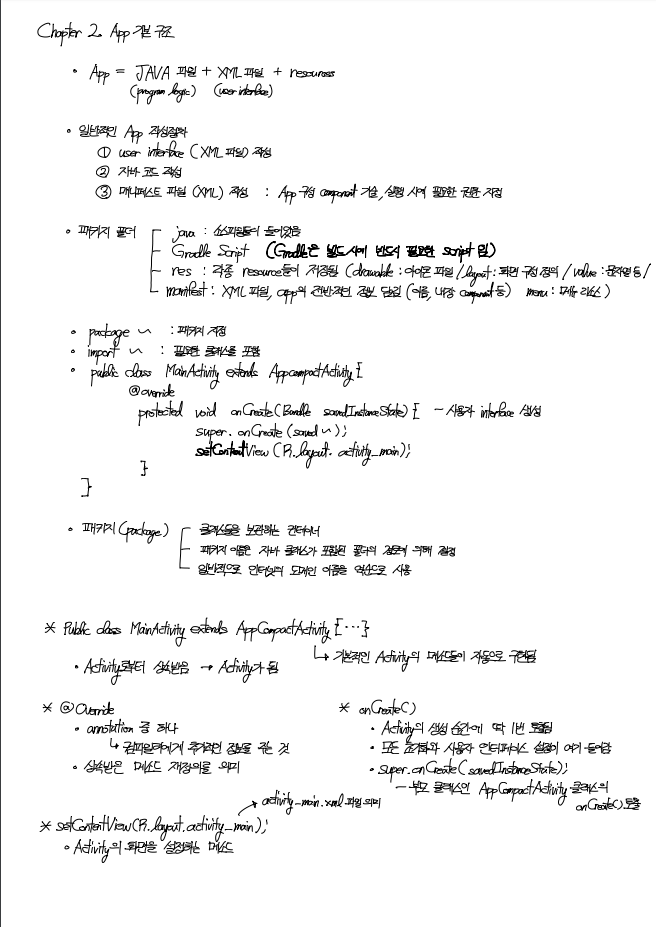 Chapter 2. App 기본 구조
• App = JAVA 파일 + XML 파일 + resources
(program logic) (user interface)
• 일반적인 App 작성절차
① user interface (XML 파일) 작성
② 자바 코드 작성
③ 매니페스트 파일 (XML) 작성 : App 구성 component 기술, 실행 시에 필요한 권한 지정
• 패키지 폴더
java : 소스파일들이 들어있음
Gradle Script (Gradle은 빌드시에 반드시 필요한 script 임)
res : 각종 resource들이 저장됨 (drawable : 아이콘 파일 / layout : 화면 구성 정의 / value : 문자열 등 /
manifest : XML 파일, app의 전반적인 정보 담김 (이름, 내장 component 등) menu : 메뉴 리소스 )
• package ~ : 패키지 지정
• import ~ : 필요한 클래스를 포함
• public class MainActivity extends AppcompactActivity {
@override
protected void onCreate(Bundle savedInstanceState) { - 사용자 interface 생성
super. onCreate (saved ~);
setContentView (R. layout. activity_main);
}
}
• 패키지 (package)
클래스들을 보관하는 컨테이너
패키지 이름은 자바 클래스가 포함된 폴더의 경로에 의해 결정
일반적으로 인터넷의 도메인 이름을 역순으로 사용
* Public class MainActivity extends AppCompactActivity { ··· }
↳ 기본적인 Activity의 메소드들이 자동으로 구현됨
• Activity로부터 상속받음 → Activity가 됨
* @Override
• annotation 중 하나
↳ 컴파일러에게 추가적인 정보를 주는 것
• 상속받은 메소드 재정의를 의미
* onCreate()
• Activity의 생성 순간에 딱 1번 호출됨
• 모든 초기화와 사용자 인터페이스 설정이 여기 들어감
• super. onCreate (savedInstanceState);
- 부모 클래스인 AppCompactActivity 클래스의
onCreate() 호출
→ activity_main. xml 파일 의미
* setContentView(R. layout. activity_main);
• Activity의 화면을 설정하는 메소드